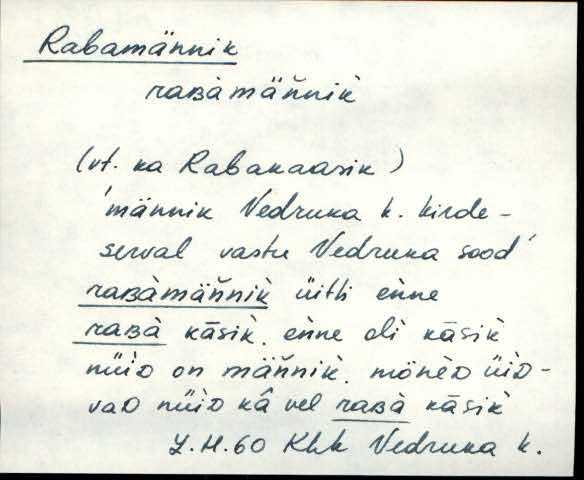 Rabamännik
raʙàmäňnik̀
(vt. ka Rabakaasik)
'männik Vedruka k. kirde-
serval vastu Vedruka sood'
raʙàmäňnik̀ üitti enne
raʙà kāsik̀. enne oli kāsik̀
nüiᴅ on mäňnik̀. mȯnèᴅ üiᴅ-
vaᴅ nüiᴅ kâ vel raʙà kāsik̀
L.H.60 Khk Vedruka k.